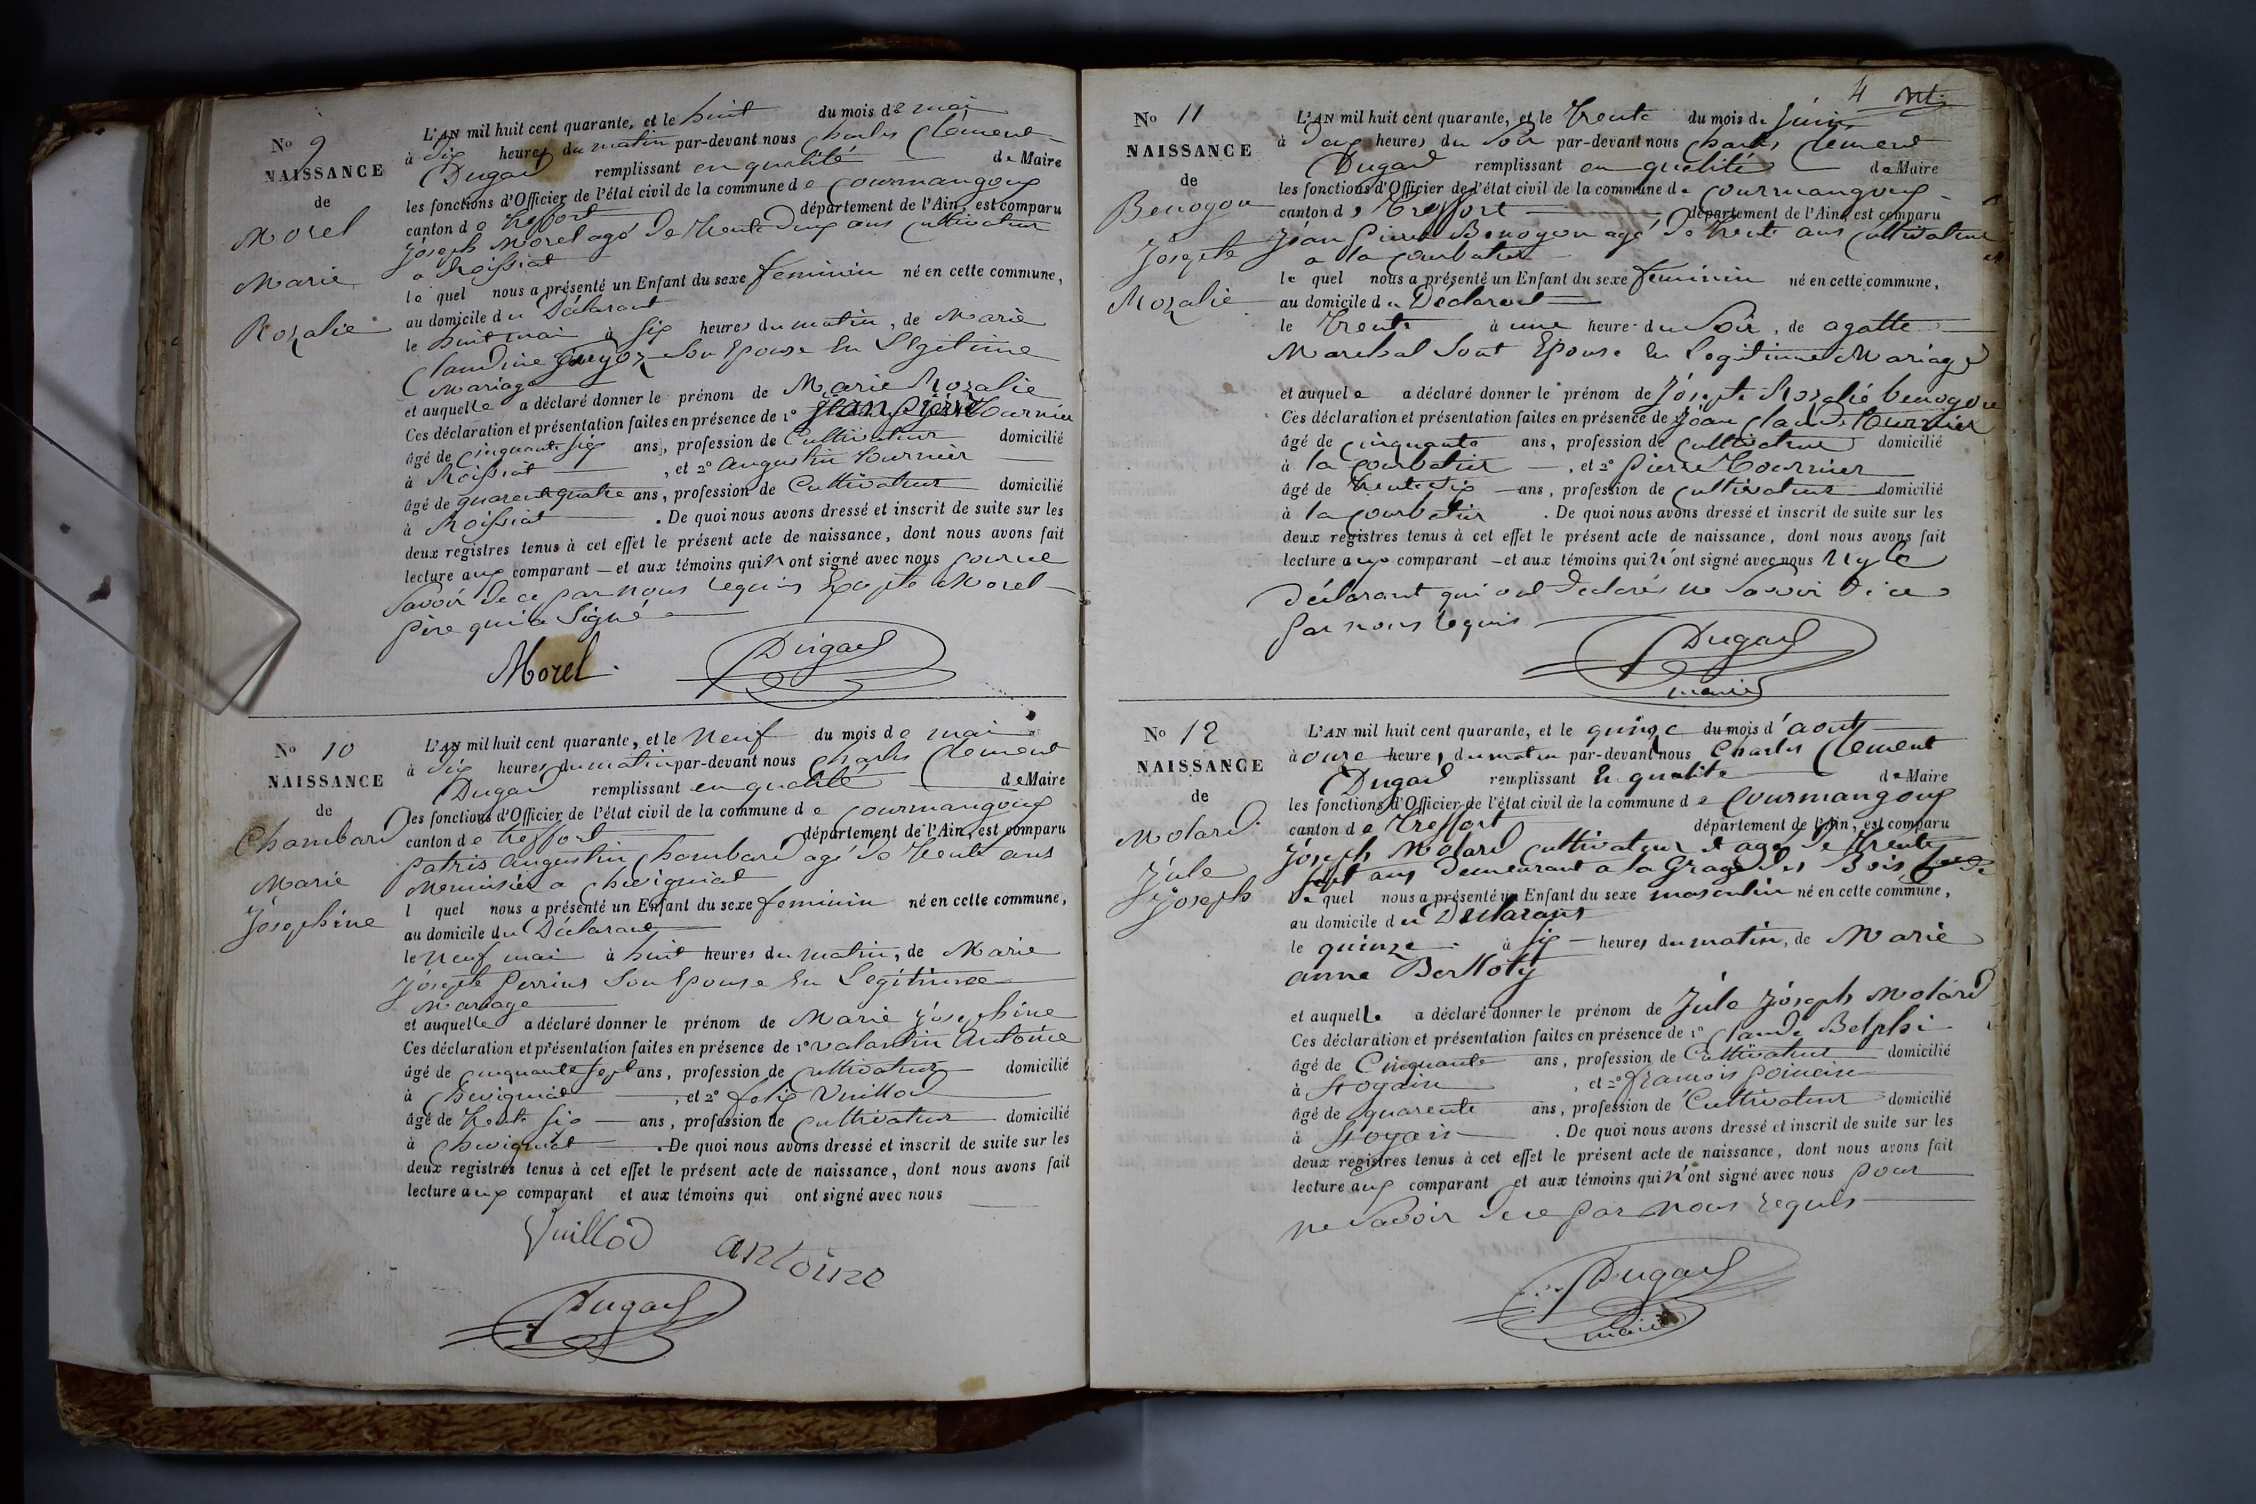 No 9
NAISSANCE
de
Morel
Marie
Rozalie
L'AN mil huit cent quarante, et le huit du mois de mai
à dix heures du matin par-devant nous Charles Clément
Dugad remplissant en qualité de Maire
les fonctions d'Officier de l'état civil de la commune de Courmangoux
canton de treffort département de l'Ain, est comparu
Joseph Morel agé de trente deux ans Cultivateur
a Roissiat
le quel nous a présenté un Enfant du sexe feminin né en cette commune,
au domicile du Déclarant
le huit mai à six heures du matin, de Marie
Claudine Guyoz Son Epouse En Légitime
Mariage
et auquelle a déclaré donner le prénom de Marie Rozalie
Ces déclaration et présentation faites en présence de 1º Jean Tournier
âgé de cinquante six ans, profession de Cultivateur domicilié
à Roissiat, et 2º augustin tournier
âgé de quarente quatre ans, profession de Cultivateur domicilié
à Roissiat. De quoi nous avons dressé et inscrit de suite sur les
deux registres tenus à cet effet le présent acte de naissance, dont nous avons fait
lecture aux comparant et aux témoins qui n'ont signé avec nous pour ne
Savoir de ce par nous requis Exepte Morel
père qui a Signé
Morel Dugad
No 10
NAISSANCE
de
Chambard
Marie
Joséphine
L'AN mil huit cent quarante, et le Neuf du mois de mai
à dix heures du matin par-devant nous Charles Clement
Dugad remplissant en qualité de Maire
les fonctions d'Officier de l'état civil de la commune de Courmangoux
canton de treffort département de l'Ain, est comparu
patris augustin Chambard agé de trente ans
Menuisier a Chevignat
l quel nous a présenté un Enfant du sexe feminin né en cette commune,
au domicile du Déclarant
le Neuf mai à huit heures du matin, de Marie
Josepte perrin Son Epouse En Légitime
Mariage
et auquelle a déclaré donner le prénom de Marie joséphine
Ces déclaration et présentation faites en présence de 1º valantin Antoine
âgé de cinquante sept ans, profession de Cultivateur domicilié
à Chevignat, et 2º felix Vuillod
âgé de trente six ans, profession de Cultivateur domicilié
à Chevignat. De quoi nous avons dressé et inscrit de suite sur les
deux registres tenus à cet effet le présent acte de naissance, dont nous avons fait
lecture aux comparant et aux témoins qui ont signé avec nous
Vuillod antoine
Dugad
4
No 11
NAISSANCE
de
Benogon
Josepte
Rozalie
L'AN mil huit cent quarante, et le trente du mois de juin
à deux heures du Soir par-devant nous Charles Clement
Dugad remplissant en qualité de Maire
les fonctions d'Officier de l'état civil de la commune de Courmangoux
canton de Treffort département de l'Ain, est comparu
Jean pierre Benogon agé de trente ans Cultivateur
a la Courbatier
le quel nous a présenté un Enfant du sexe feminin né en cette commune,
au domicile du Déclarant
le trente à une heure du Soir, de agatte
Marechal Sont Epouse En Legitimme Mariage
et auquele a déclaré donner le prénom de Josepte Rozalie benogon
Ces déclaration et présentation faites en présence de Jean Claude tournier
âgé de cinquante ans, profession de Cultivateur domicilié
à la Courbatier, et 2º pierre Tournier
âgé de trente six ans, profession de Cultivateur domicilié
à la Courbatier. De quoi nous avons dressé et inscrit de suite sur les
deux registres tenus à cet effet le présent acte de naissance, dont nous avons fait
lecture aux comparant et aux témoins qui n'ont signé avec nous Ny le
Déclarant qui ont declarés ne Savoir de ce
par nous requis
Dugad
maire
No 12
NAISSANCE
de
Molard
Jule
joseph
L'AN mil huit cent quarante, et le quinze du mois d'aout
à onze heures du matin par-devant nous Charles Clement
Dugad remplissant En qualité de Maire
les fonctions d'Officier de l'état civil de la commune de Courmangoux
canton de treffort département de l'Ain, est comparu
Joseph Molard Cultivateur agé de trente
Sept ans demeurant a la Grange des Bois
le quel nous a présenté un Enfant du sexe masculin né en cette commune,
au domicile du Déclarant
le quinze à six heures du matin, de Marie
anne
et auquelle a déclaré donner le prénom de Jule joseph Molard
Ces déclaration et présentation faites en présence de 1º Claude
âgé de Cinquante ans, profession de Cultivateur domicilié
à, et 2º francois
âgé de quarente ans, profession de Cultivateur domicilié
à. De quoi nous avons dressé et inscrit de suite sur les
deux registres tenus à cet effet le présent acte de naissance, dont nous avons fait
lecture aux comparant et aux témoins qui n'ont signé avec nous pour
ne Savoir de ce par nous requis
Dugad
maire